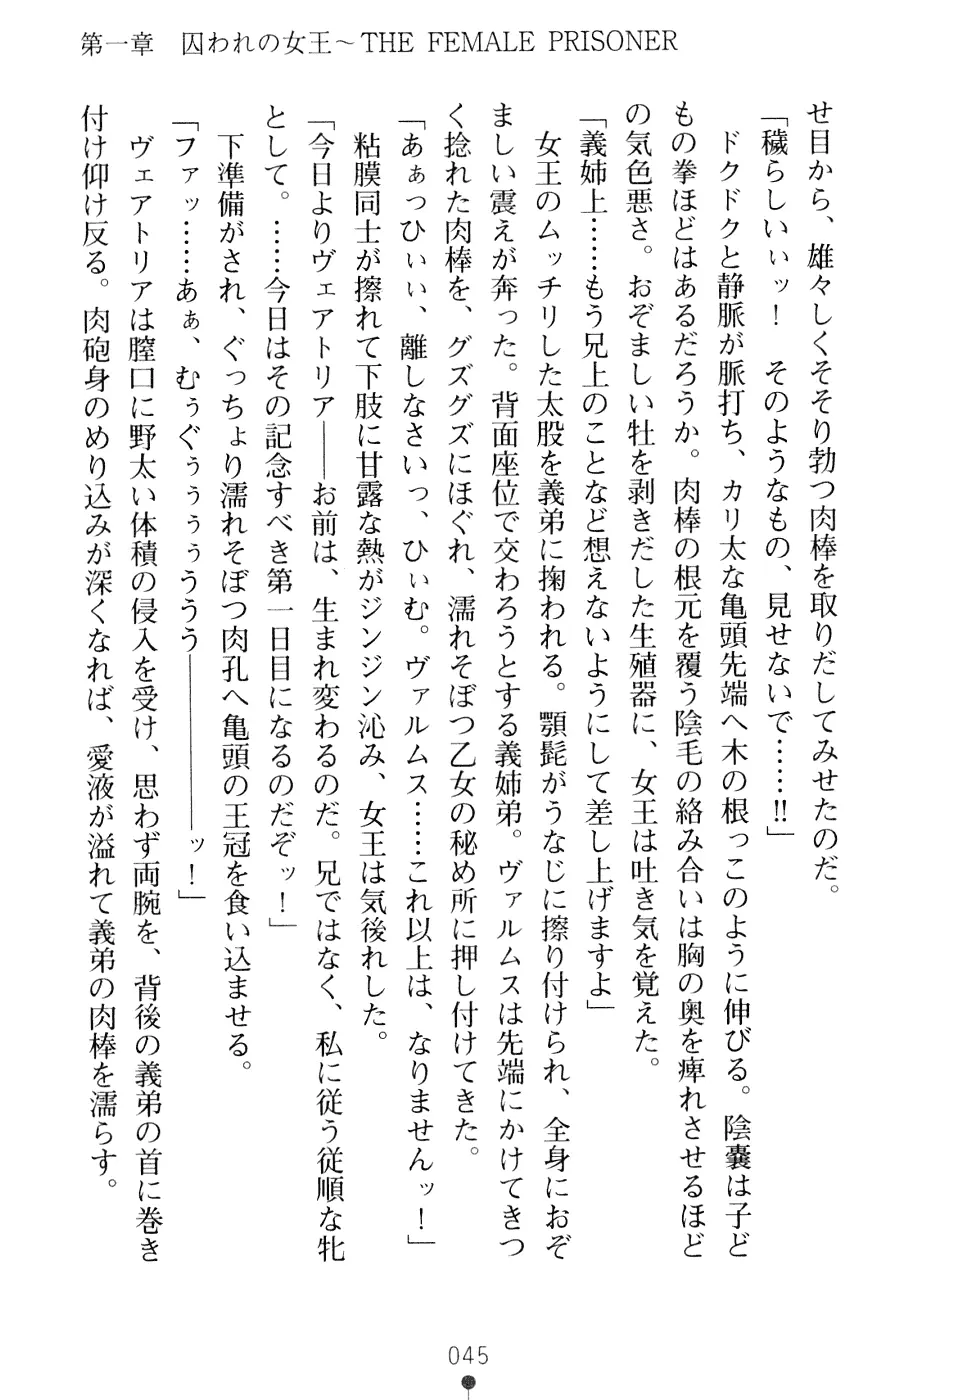 第一章　囚われの女王～THE FEMALE PRISONER
せ目から、雄々しくそそり勃つ肉棒を取りだしてみせたのだ。
「穢らしいぃッ！　そのようなもの、見せないで……!!」
　ドクドクと静脈が脈打ち、カリ太な亀頭先端へ木の根っこのように伸びる。陰嚢は子ど
もの拳ほどはあるだろうか。肉棒の根元を覆う陰毛の絡み合いは胸の奥を痺れさせるほど
の気色悪さ。おぞましい牡を剥きだした生殖器に、女王は吐き気を覚えた。
「義姉上……もう兄上のことなど想えないようにして差し上げますよ」
　女王のムッチリした太股を義弟に掬われる。顎髭がうなじに擦り付けられ、全身におぞ
ましい震えが奔った。背面座位で交わろうとする義姉弟。ヴァルムスは先端にかけてきつ
く捻れた肉棒を、グズグズにほぐれ、濡れそぼつ乙女の秘め所に押し付けてきた。
「あぁっひぃぃ、離しなさいっ、ひぃむ。ヴァルムス……これ以上は、なりませんッ！」
　粘膜同士が擦れて下肢に甘露な熱がジンジン沁み、女王は気後れした。
「今日よりヴェアトリア――お前は、生まれ変わるのだ。兄ではなく、私に従う従順な牝
として。……今日はその記念すべき第一日目になるのだぞッ！」
　下準備がされ、ぐっちょり濡れそぼつ肉孔へ亀頭の王冠を食い込ませる。
「ファッ……あぁ、むぅぐぅぅぅぅううう――――――ッ！」
　ヴェアトリアは膣口に野太い体積の侵入を受け、思わず両腕を、背後の義弟の首に巻き
付け仰け反る。肉砲身のめり込みが深くなれば、愛液が溢れて義弟の肉棒を濡らす。
045